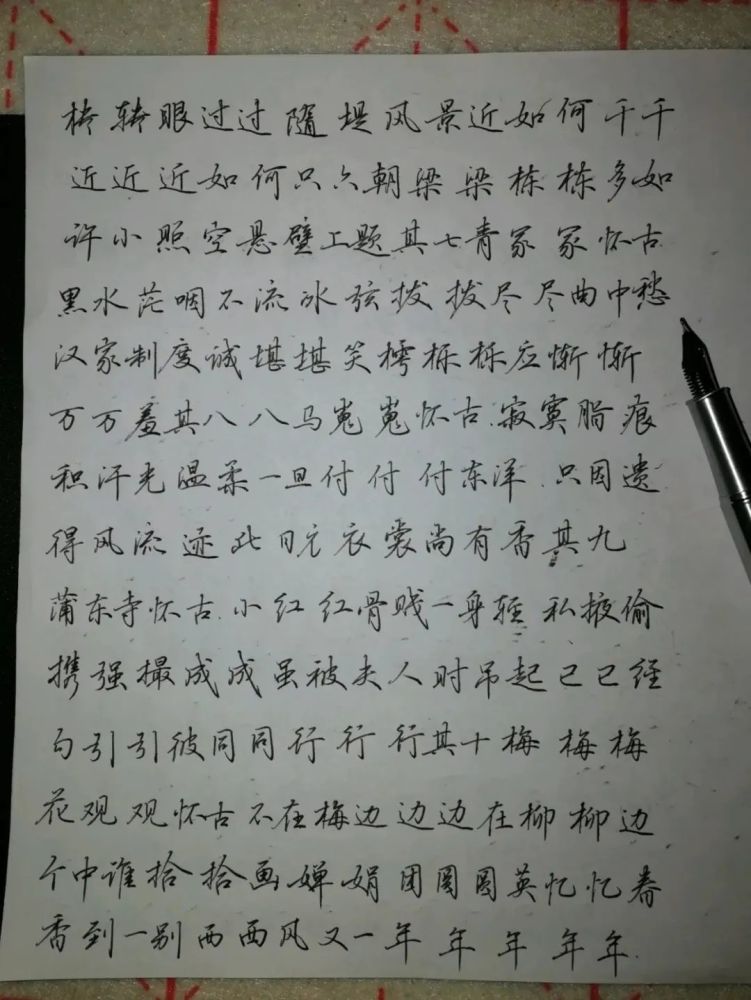 转眼过过隋堤风景近如何千千
近近近如何只六朝梁梁栋栋多如
许小照空悬壁上题其七青冢冢怀古
黑水茫咽不流冰弦拨拨尽尽曲中愁
汉家制度诚堪堪笑樗栎栎应惭惭
万万羞其八八马嵬嵬怀古寂寞脂痕
积汗光温柔一旦付付付东洋只因遗
得风流迹此日衣裳尚有香其九
蒲东寺怀古小红红骨贱一身轻私掖偷
携强撮成成虽被夫人时吊起已已经
勾引引彼同同行行行其十梅梅梅
花观观怀古不在梅边边边在柳柳边
个中谁拾拾画婵娟团圆圆莫忆忆春
香到一别西西风又一年年年年年